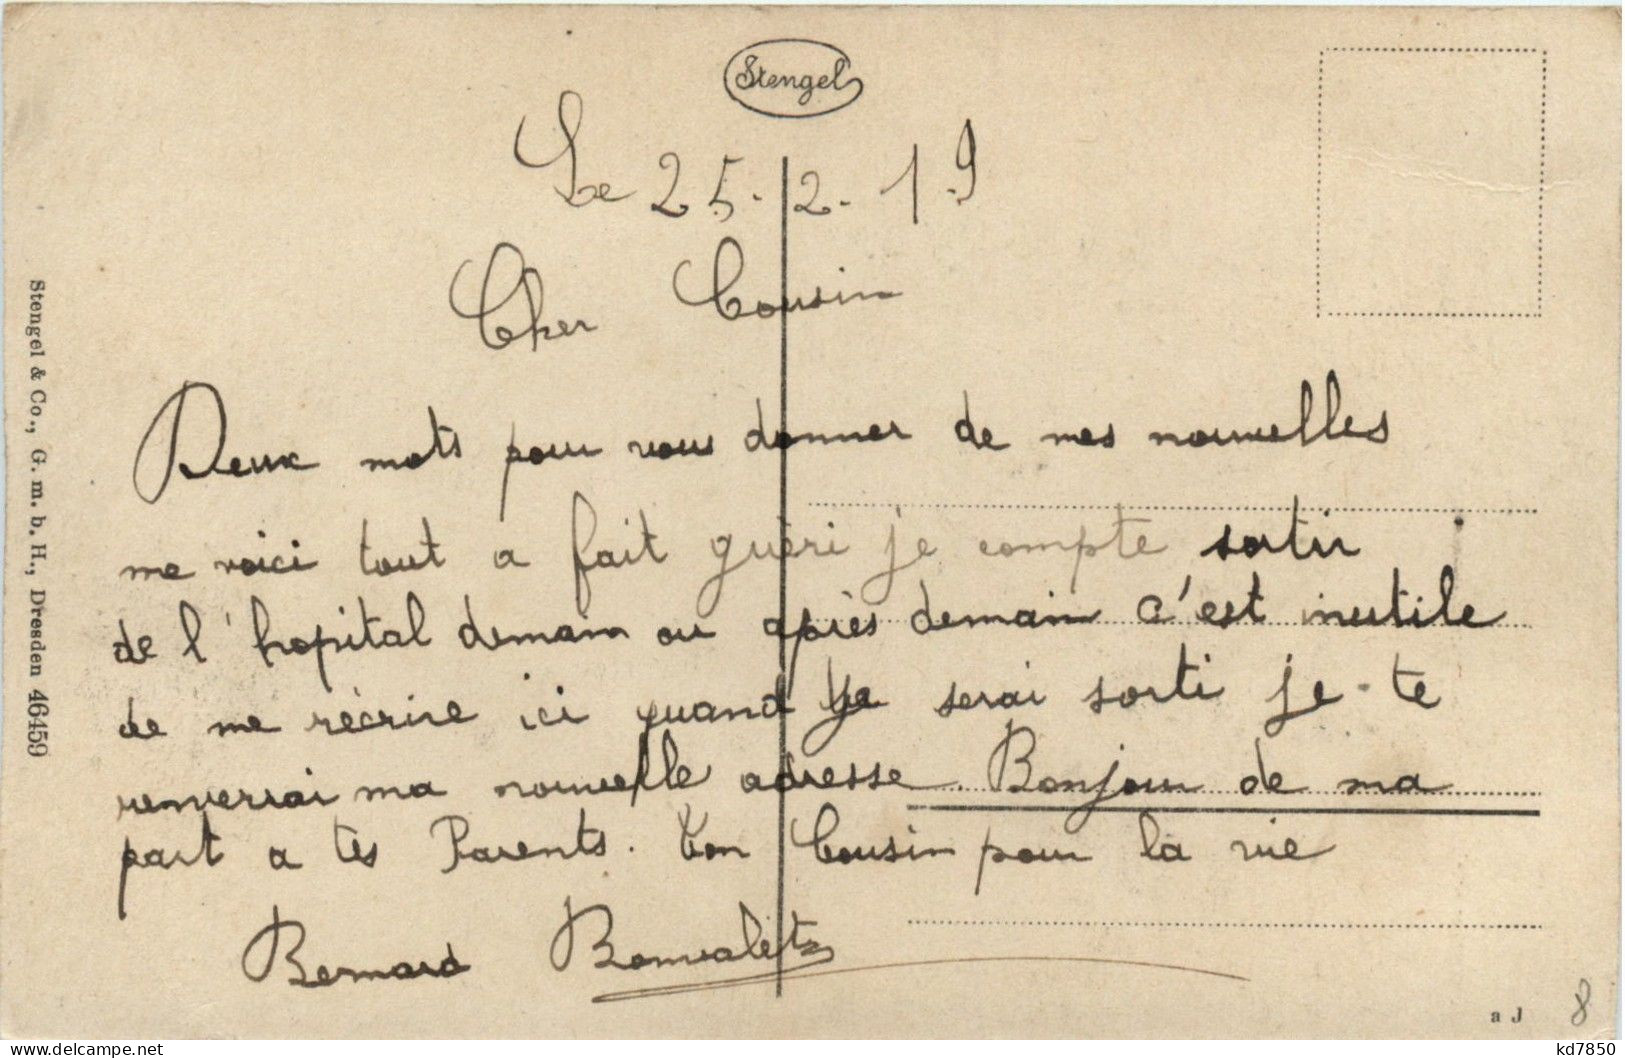 Stengel
Le 25-2-19
Cher Cousin
Deux mots pour vous donner de mes nouvelles
me voici tout a fait guèri je compte sortir
de l'hopital demain ou après demain c'est inutile
de me rècrire ici quand je serai sorti je te
renverrai ma nouvelle adresse. Bonjour de ma
part a tes Parents. Ton Cousin pour la vie
Bernard
Stengel & Co., G. m. b. H., Dresden 46459
a J
8
kd7850